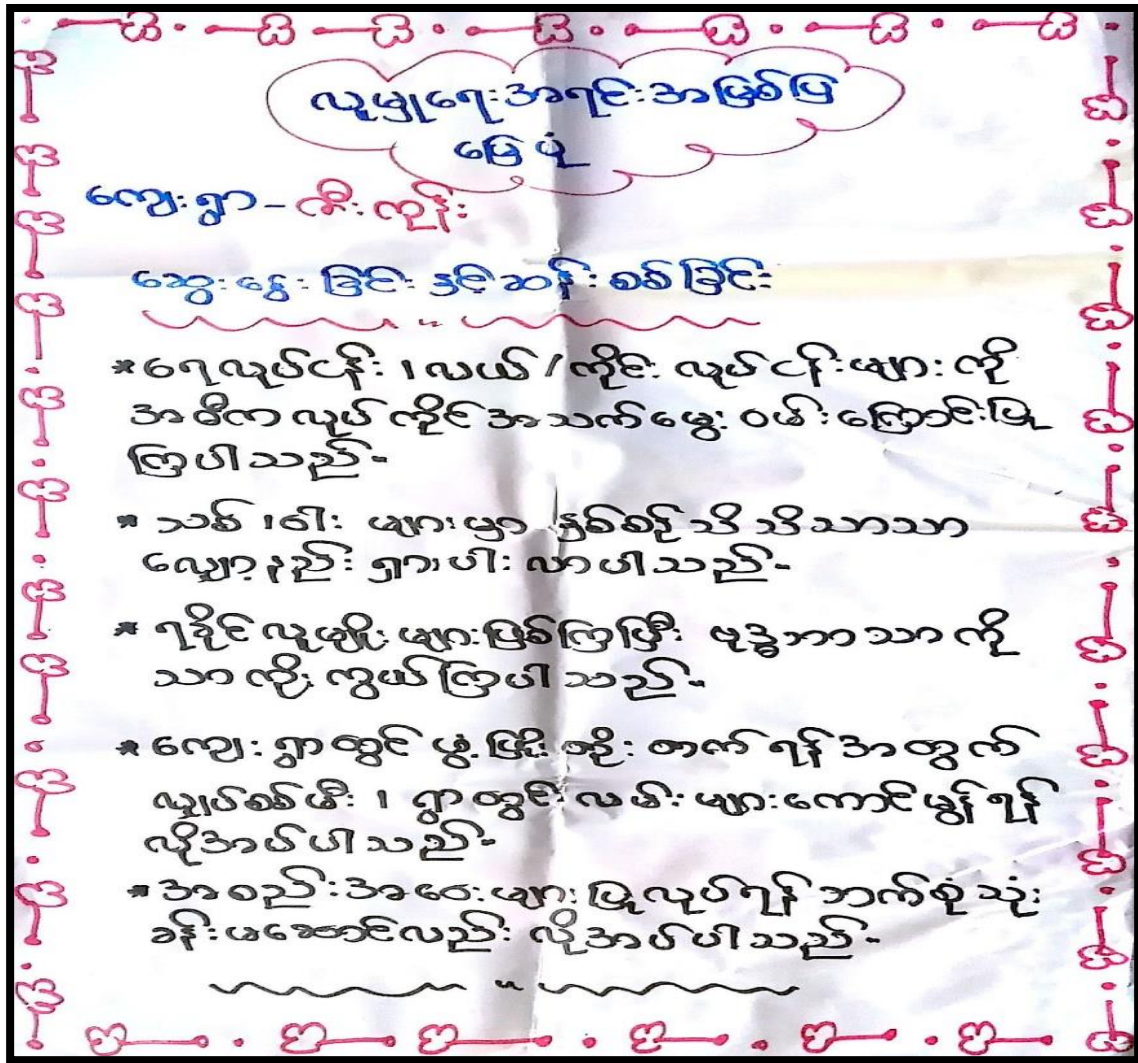 လူမှုရေးအရင်းအမြစ်ပြ
မြေပုံ
ကျေးရွာ - ဆီးကုန်း
ဆွေးနွေးခြင်းနှင့်ဆန်းစစ်ခြင်း
*ရေလုပ်ငန်း၊လယ်/ကိုင်းလုပ်ငန်းများကို
အဓိကလုပ်ကိုင်အသက်မွေးဝမ်းကြောင်းပြု
ကြပါသည်-
* သစ်၊ဝါးများမှာ နှစ်စဉ်သိသိသာသာ
လျှော့နည်းရှားပါးလာပါသည်-
* ရခိုင်လူမျိုးများဖြစ်ကြပြီး ဗုဒ္ဓဘာသာကို
သာကိုးကွယ်ကြပါသည်-
*ကျေးရွာတွင်ဖွံ့ဖြိုးတိုးတက်ရန်အတွက်
လျှပ်စစ်မီး၊ရွာတွင်းလမ်းများကောင်းမွန်ရန်
လိုအပ်ပါသည်-
*အစည်းအဝေးများပြုလုပ်ရန်ဘက်စုံသုံး
ခန်းမဆောင်လည်းလိုအပ်ပါသည်-